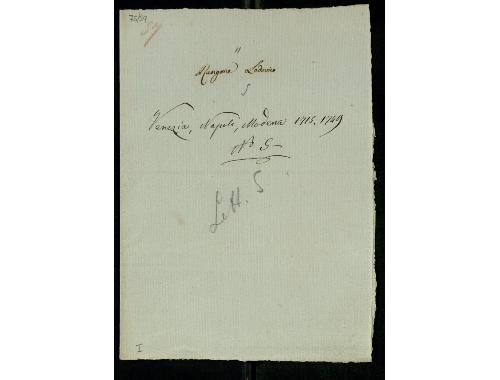 75/59
57
"
Rangone Lodovico
5
Venezia, Napoli, Modena 1715. 1749
N.° 5
Lett. 5
I